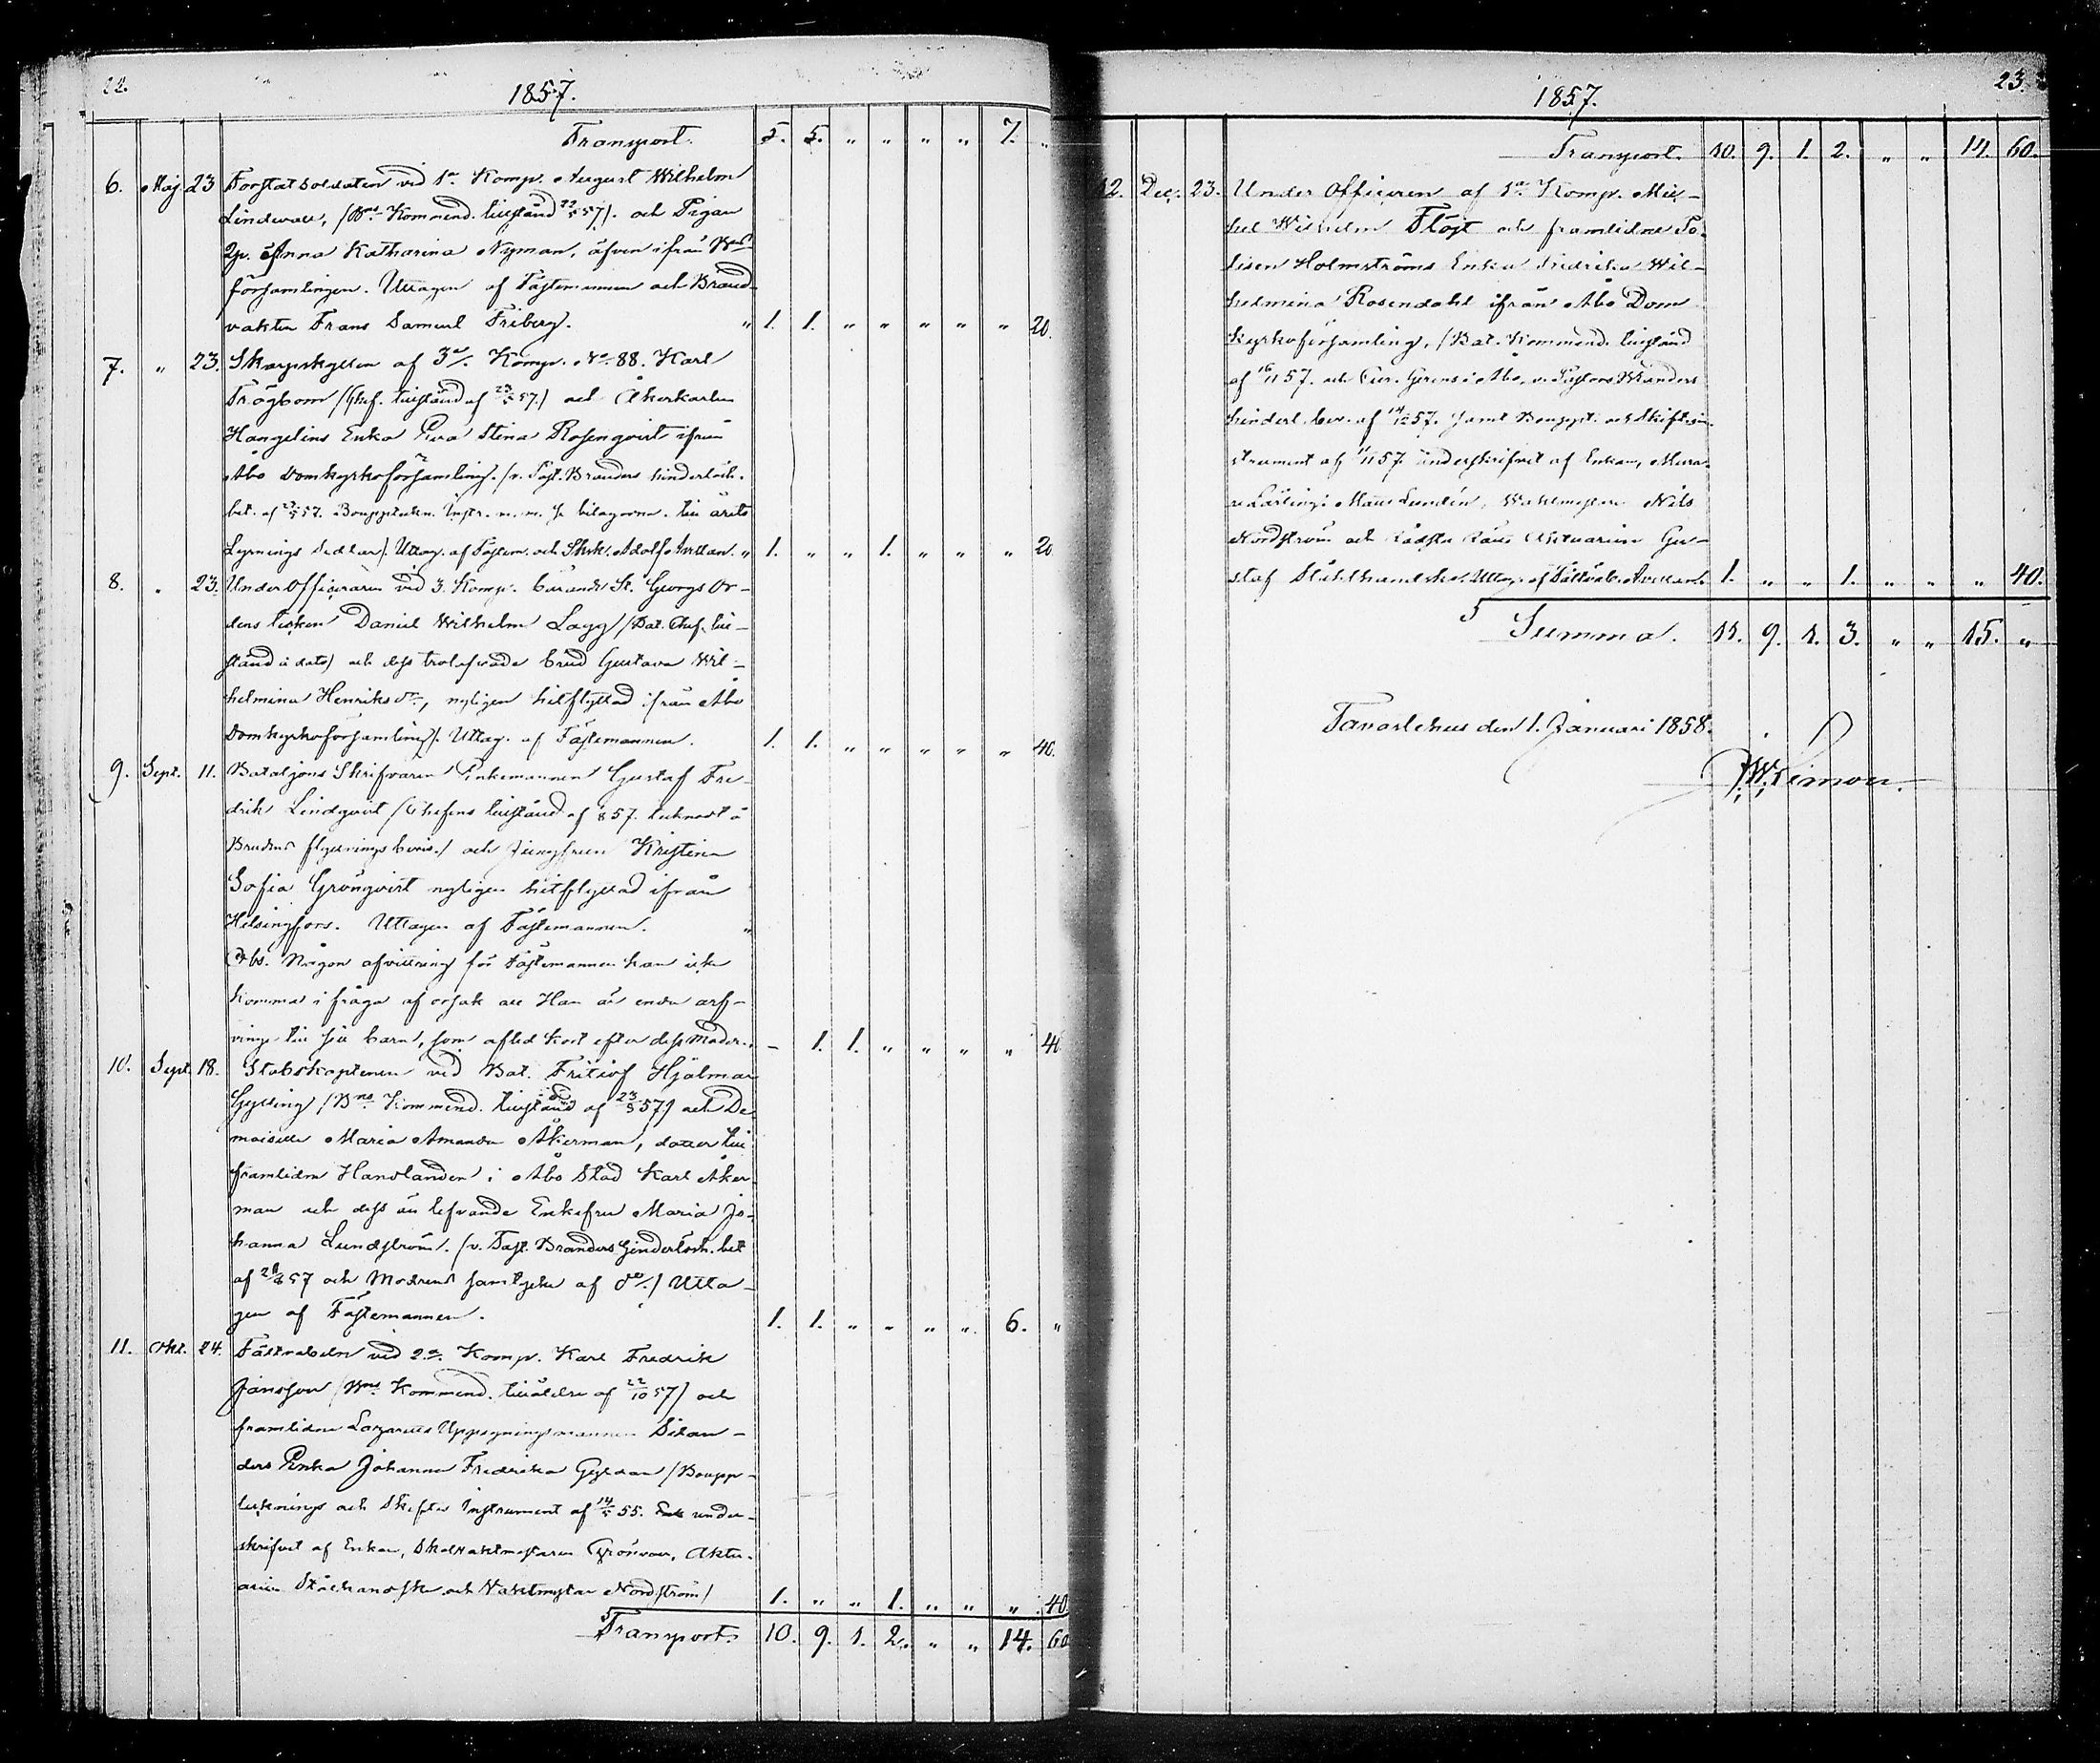 22.
1857.
Transport. 5. 5. " " " " 7. "
6. Maj. 23 Forstatsoldaten vid 1a Komp. August Wilhelm
Lindewall, (Bns Kommend. tillstånd 22/5 57). och Pigan
Anna Katharina Nyman, äfven ifrån
församlingen. Uttagen af Fästemannen och Brand
vakten Frans Samuel Friberg. " 1. 1. " " " " " 20.
7. " 23. Skarpskytten af 3e Komp. No 88. Karl
Trögbom (Chef. tillstånd af 57.) och Åkerkarlen
Hangelins Enka Eva Stina Rosenqvist ifrån
Åbo Domkyrkoförsamling. (v. Past. Branders hinderlösh.
bet. af 57. Bouppteckn. Instr. m.m. se bilagorne till årets
Lysnings Sedlar). Uttag. af Fästem. och Skrk. Adolf Avellan. " 1. " " 1. " " " 20
8. " 23. Under Officeraren vid 3. Komp. bärande St. Georgs Or-
dens tecken Daniel Wilhelm Lagg (Bat. Chef. till-
stånd à dato) och dess trolofvade brud Gustava Wil-
helmina Henriksdr, nyligen hitflyttad ifrån Åbo
Domkyrkoförsamling). Uttag. af Fästemannen. 1. 1. " " " " " 40.
9. Sept. 11. Bataljons Skrifvaren Enkemannen Gustaf Fre-
drik Lindqvist (Chefens tillstånd af 857. tecknadt å
Brudens flyttningsbevis.) och Jungfrun Kristina
Sofia Grönqvist nyligen hitflyttad ifrån
Helsingfors. Uttagen af Fästemannen. "
Obs. Någon afvittring för Fästemannen kan icke
komma i fråga af orsak att Han är enda arf-
vinge till sin barn, som afled kort efter dess Moder. - 1. 1. " " " " 40
10. Sept. 18. Stabskaptenen vid Bat. Fritiof Hjalmar
Gylling (Bns Kommend. tillstånd af 23/8 57) och De
moiselle Maria Amanda Åkerman, dotter till
framlidne Handlanden i Åbo Stad Karl Åker
man och dess än lefvande Enkefru Maria Jo-
hanna Lundström. (v. Past. Branders hinderlösh. bet
af 57 och Modrens samtycke af do.) Utta-
gen af Fästemannen. 1. 1. " " " " 6. "
11. Okt. 24. Fältväbeln vid 2a Komp. Karl Fredrik
Jansson (Bns Kommend. tillåtelse af 22/10 57) och
framlidne Lazaretts Uppsyningsmannen Silan-
ders Enka Johanna Fredrika Gyldan (Boupp-
tecknings och Skiftes Instrument af 14/5 55. under-
skrifvet af Enkan, Skolvaktmästaren Grönroos, Aktu-
arien Stålhandske och Vaktmästar Nordström) 1. " " 1. " " " 40
Transport. 10. 9. 1. 2. " " 14. 60
23.
1857.
Transport. 10. 9. 1. 2. " " 14. 60.
12. Dec. 23. Under Officeren af 1a Komp. Mic-
hel Wilhelm Flöjt och framlidne Po-
lisen Holmströms Enka Fredrika Wil-
helmina Rosendahl ifrån Åbo Dom
kyrkoförsamling, (Bat. Kommend. tillstånd
af 16/11 57. och Cur. Gerens i Åbo, v. Pastors Branders
hinderl. bev. af 14/12 57. samt Bouppt. och Skiftesin-
strument af 57. underskrifvet af Enkan, Mura-
re Lärling: Maur Lundén, Waktmästare Nils
Nordström och Rådstu Räus Aktuarien Gu-
staf Stålhandske. Uttag. af Fältväb. Avellan. 1. " " 1. " " " 40.
Summa. 11. 9. 1. 3. " " 15. "
Tavastehus den 1. Januari 1858.
F.W. Limon.